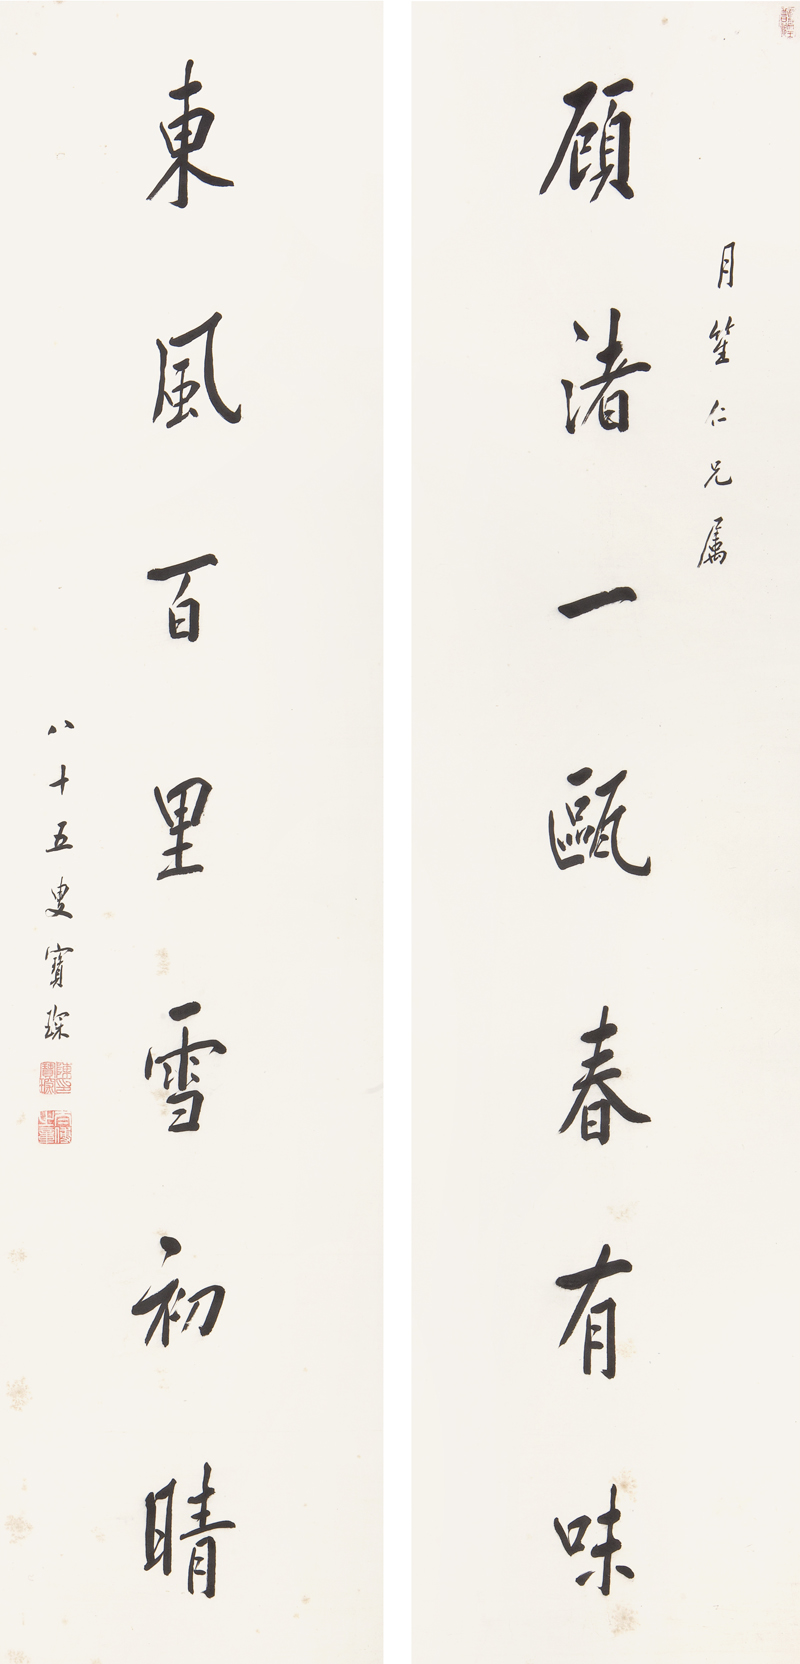 顧渚一甌春有味
月笙仁兄属
東風百里雪初晴
八十五叟寶琛
陳寶琛印